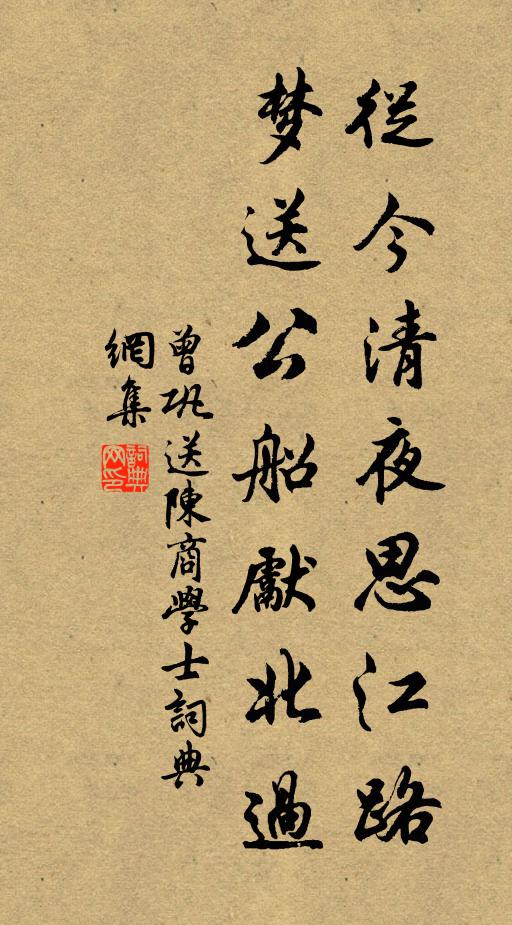 從今清夜思江路
梦送公船獻北過
曾巩送陳商學士詞典
網集
詞典网印